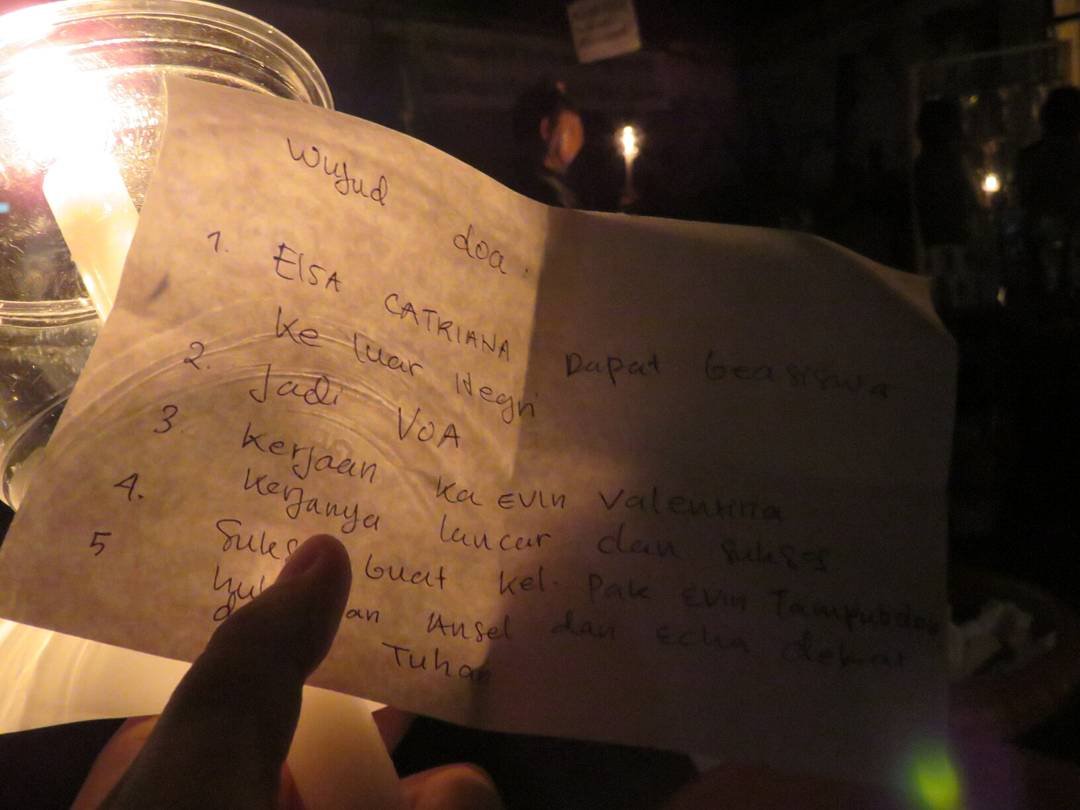 Wujud doa.
1. ElSA CATRIANA Dapat beasiswa
ke luar Negri
2. Jadi VOA
3 Kerjaan ka EVIN Valentina
4. Kerjanya lancar dan sukses
5 Suks buat kel. Pak EVIN Tampubolon
an Ansel dan Echa dekat
Tuhan